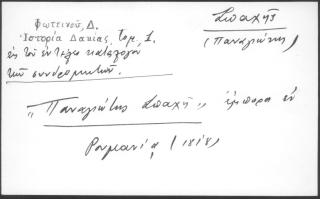 Φωτεινοῦ, Δ.
Ἱστορία Δακίας, Τομ. 1,
εἰς τὸν ἐν τέλει κατάλογον
τῶν συνδρομητῶν.
Σπαχῆς
(Παναγιώτης)
"Παναγιώτης Σπαχῆ", ἔμπορος ἐν
Ρουμανίᾳ (1818)